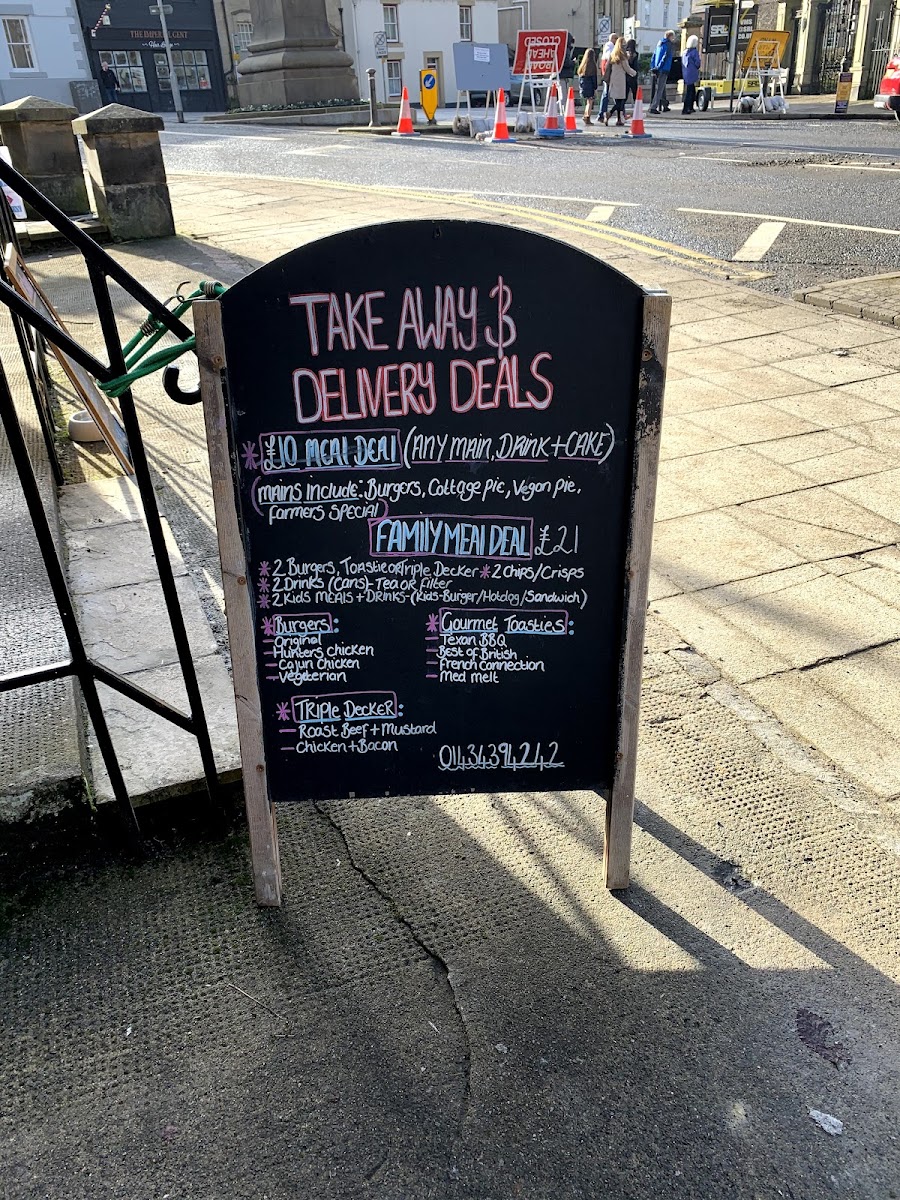 THE IMPERIAL GENT
ROAD
AHEAD
CLOSED
TAKE AWAY &
DELIVERY DEALS
* £10 MEAL DEAL (ANY MAIN, DRINK + CAKE)
(MAINS INCLUDE: Burgers, Cottage Pie, Vegan Pie,
farmers SPECIAL)
FAMILY MEAL DEAL £21
* 2 Burgers, TOASTIE OR Triple Decker * 2 CHIPS/Crisps
* 2 Drinks (cans) - TEA OR Filter
* 2 KIDS MEALS + DRINKS - (Kids-Burger/Hotdog/Sandwich)
* Burgers:
- Original
- Hunters chicken
- Cajun Chicken
- Vegeterian
* Gourmet Toasties:
- Texan BBQ
- Best of British
- French Connection
- Med melt
* TRIPLE DECKER:
- Roast Beef + Mustard
- Chicken + Bacon
01434394242